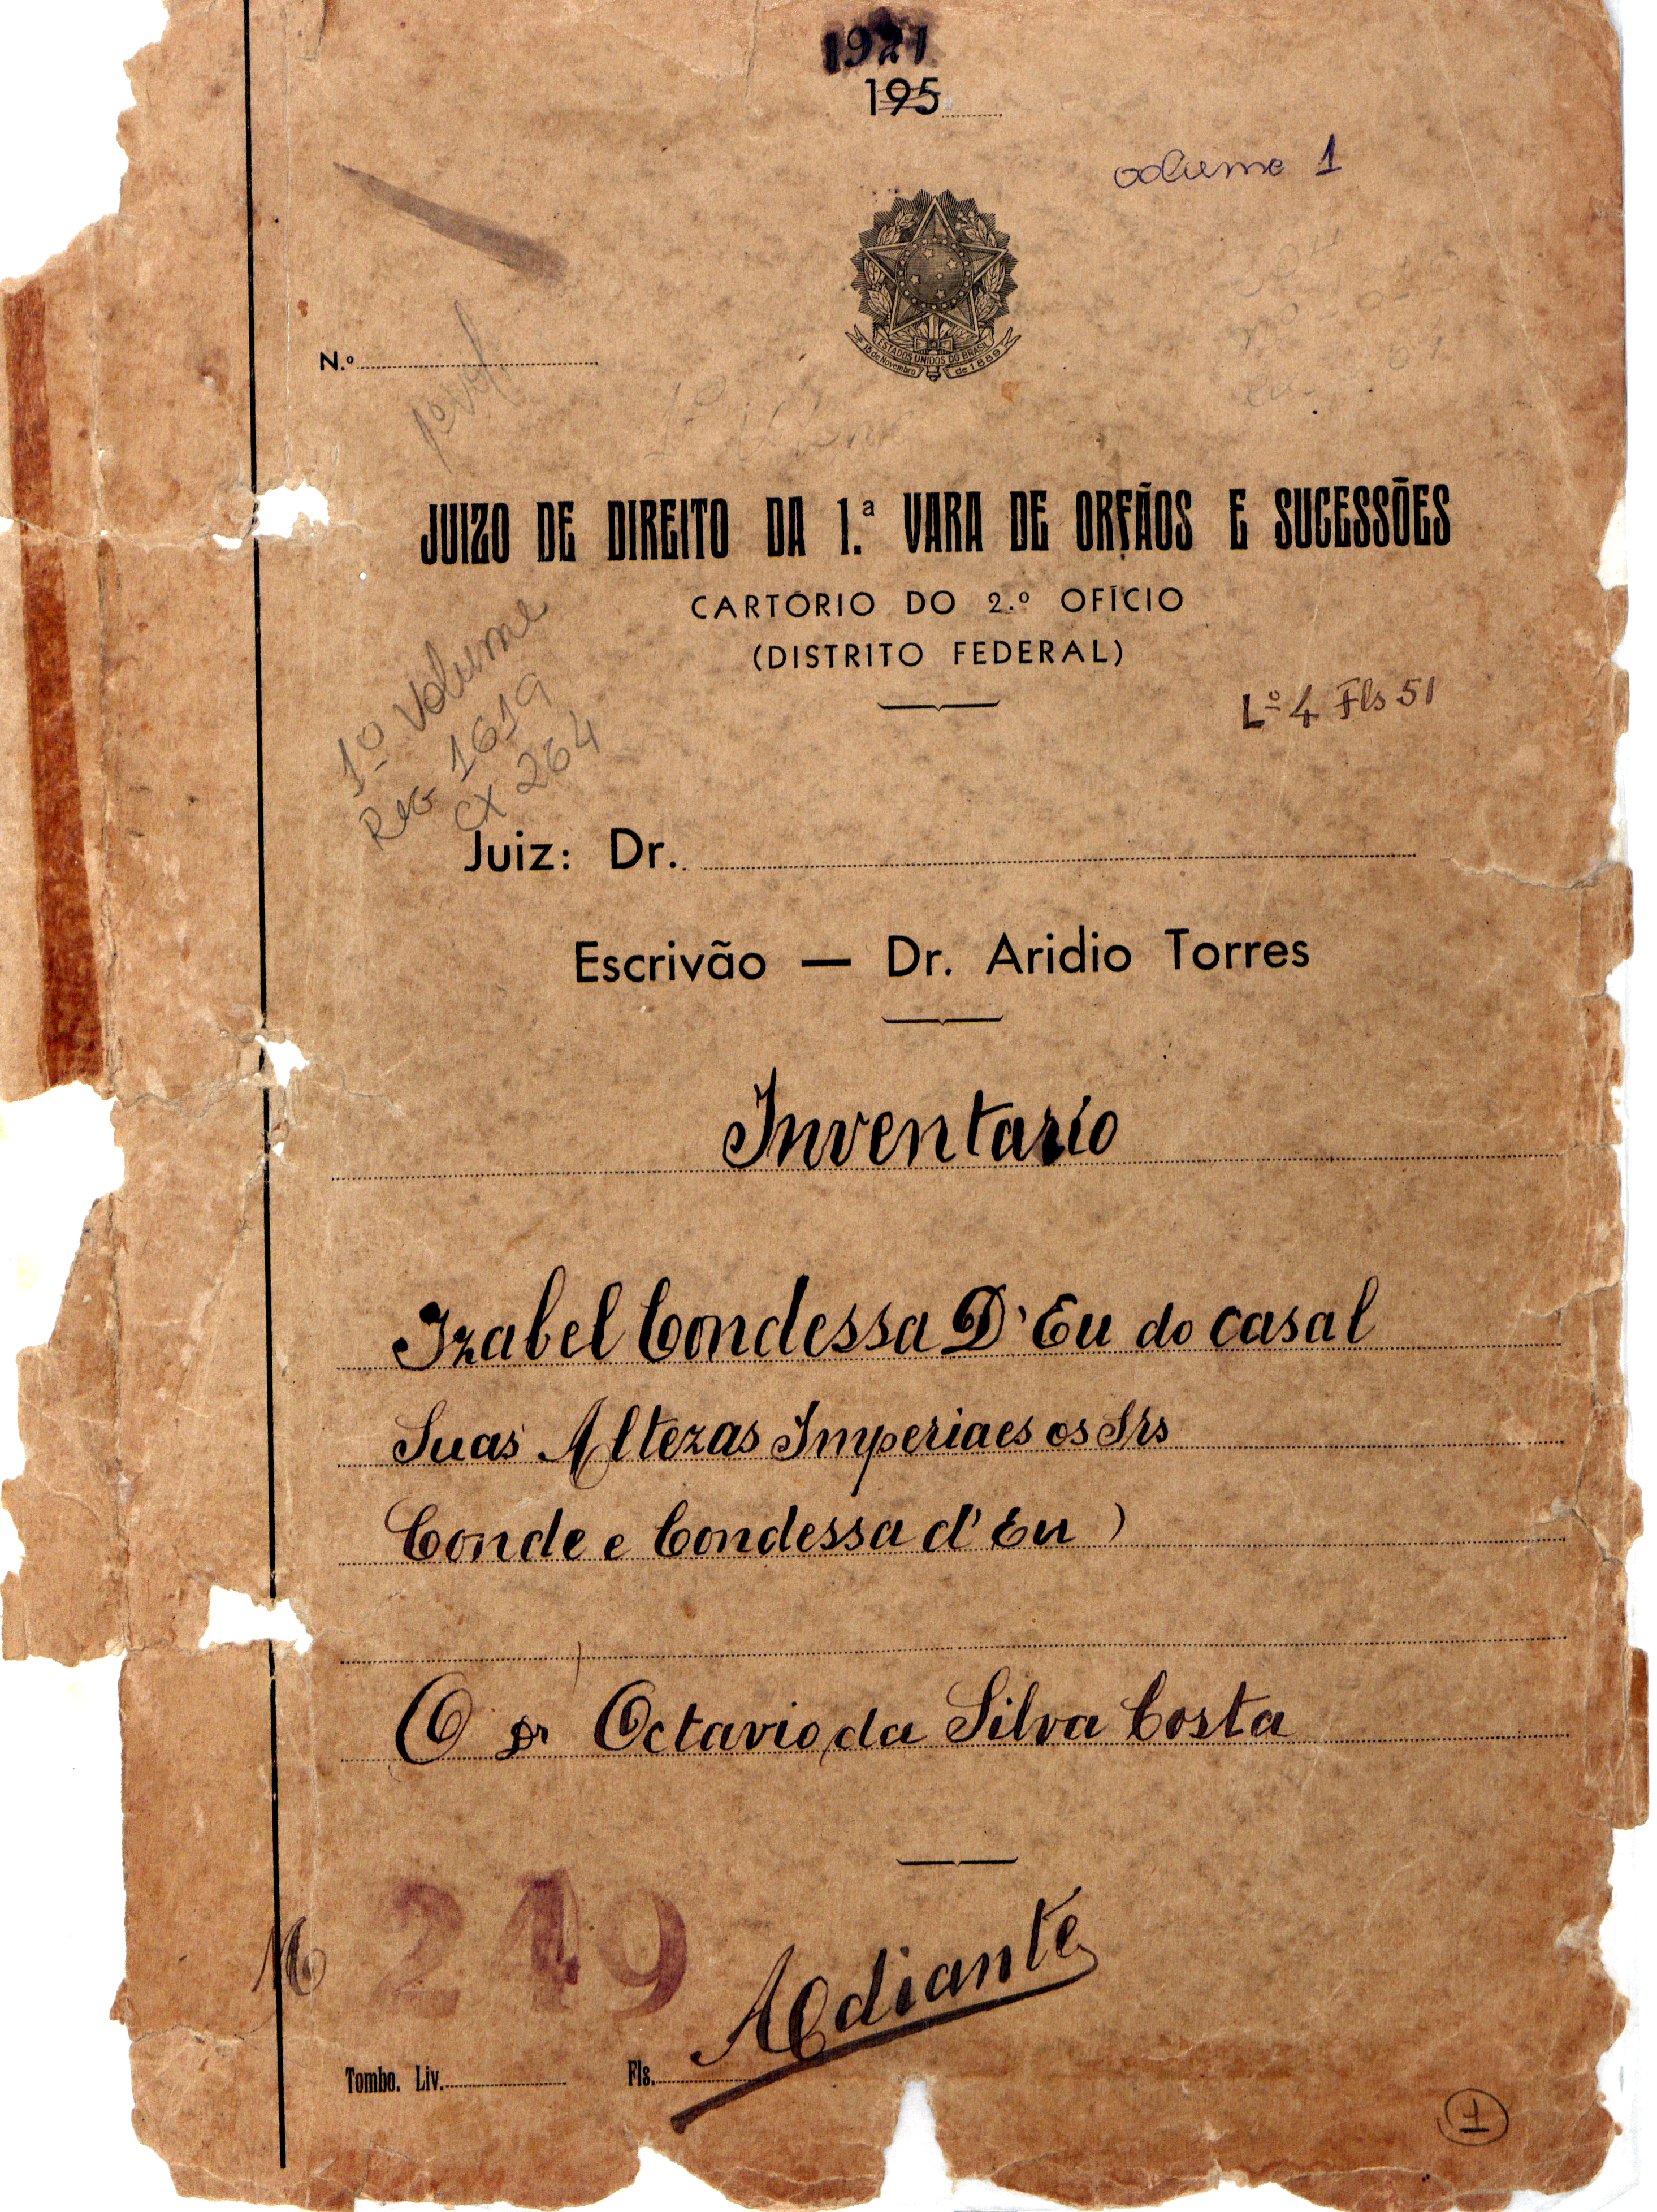 1921
195
volume 1
ESTADOS UNIDOS DO BRASIL
15 de Novembro de 1889
N.º
1º vol
JUIZO DE DIREITO DA 1.ª VARA DE ORFÃOS E SUCESSÕES
CARTÓRIO DO 2.º OFÍCIO
(DISTRITO FEDERAL)
Lº 4 Fls 51
1º Volume
Reg 1619
CX 264
Juiz: Dr.
Escrivão — Dr. Aridio Torres
Inventario
Izabel Condessa D'Eu do casal
Suas Altezas Imperiaes os Srs
Conde e Condessa d'Eu )
O Dr Octavio da Silva Costa
249
Adiante
Tombo. Liv. Fls.
1